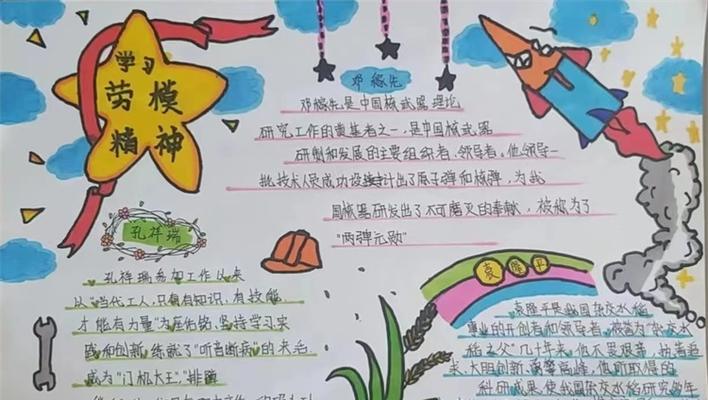 学习
劳模
精神
邓稼先
邓稼先是中国核武器理论
研究工作的奠基者之一,是中国核武器
研制和发展的主要组织者、领导者。他领导一
批技术人员成功设计出了原子弹和核弹,为我
国核器研发出了不可磨灭的奉献,被称为了
"两弹元勋"
孔祥瑞
孔祥瑞参加工作以来
从"当代工人,只有有知识、有技能
才能有力量"为座佑铭,坚持学习实
践和创新,练就了"听音断病"的
成为"门机大王","排障
袁隆平
袁隆平是我国杂交水稻
事业的开创者和领导者,被誉为"杂交水
稻之父"几十年来,他不畏艰辛,执着追
求、大胆创新、勇攀高峰,他所取得的
科研成果,使我国杂交水稻研究